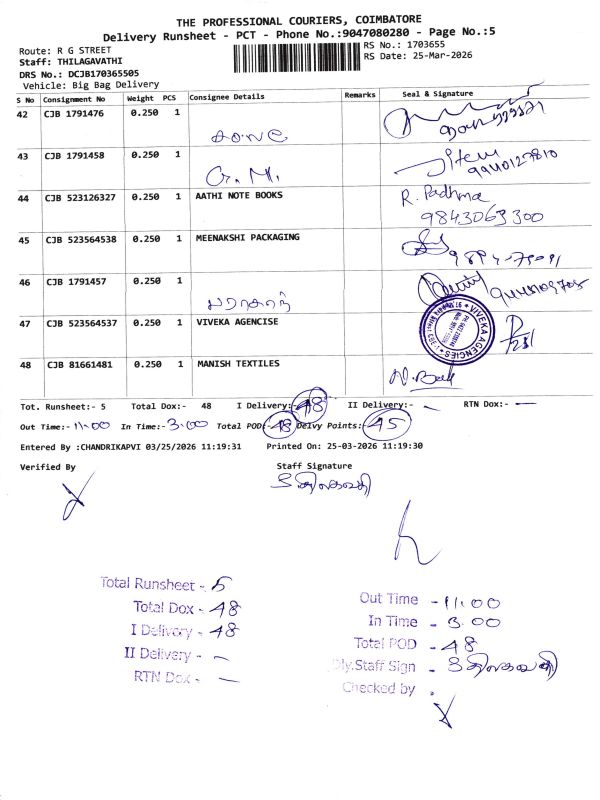 THE PROFESSIONAL COURIERS, COIMBATORE
Delivery Runsheet - PCT - Phone No.:9047080280 - Page No.:5
Route: R G STREET
RS No.: 1703655
Staff: THILAGAVATHI
RS Date: 25-Mar-2026
DRS No.: DCJB170365505
Vehicle: Big Bag Delivery
S No Consignment No Weight PCS Consignee Details Remarks Seal & Signature
42 CJB 1791476 0.250 1
43 CJB 1791458 0.250 1 G. M. Jitem
44 CJB 523126327 0.250 1 AATHI NOTE BOOKS R. Padhma
9843063300
45 CJB 523564538 0.250 1 MEENAKSHI PACKAGING
46 CJB 1791457 0.250 1
47 CJB 523564537 0.250 1 VIVEKA AGENCISE VIVEKA AGENCIES
48 CJB 81661481 0.250 1 MANISH TEXTILES
Tot. Runsheet:- 5 Total Dox:- 48 I Delivery:- 48 II Delivery:- — RTN Dox:- —
Out Time:- 11.00 In Time:- 3.00 Total POD:- 48 Delvy Points:- 45
Entered By :CHANDRIKAPVI 03/25/2026 11:19:31 Printed On: 25-03-2026 11:19:30
Verified By Staff Signature
திலகவதி
Total Runsheet - 5
Total Dox - 48
I Delivery - 48
II Delivery - —
RTN Dox - —
Out Time - 11.00
In Time - 3.00
Total POD - 48
Dly.Staff Sign - திலகவதி
Checked by